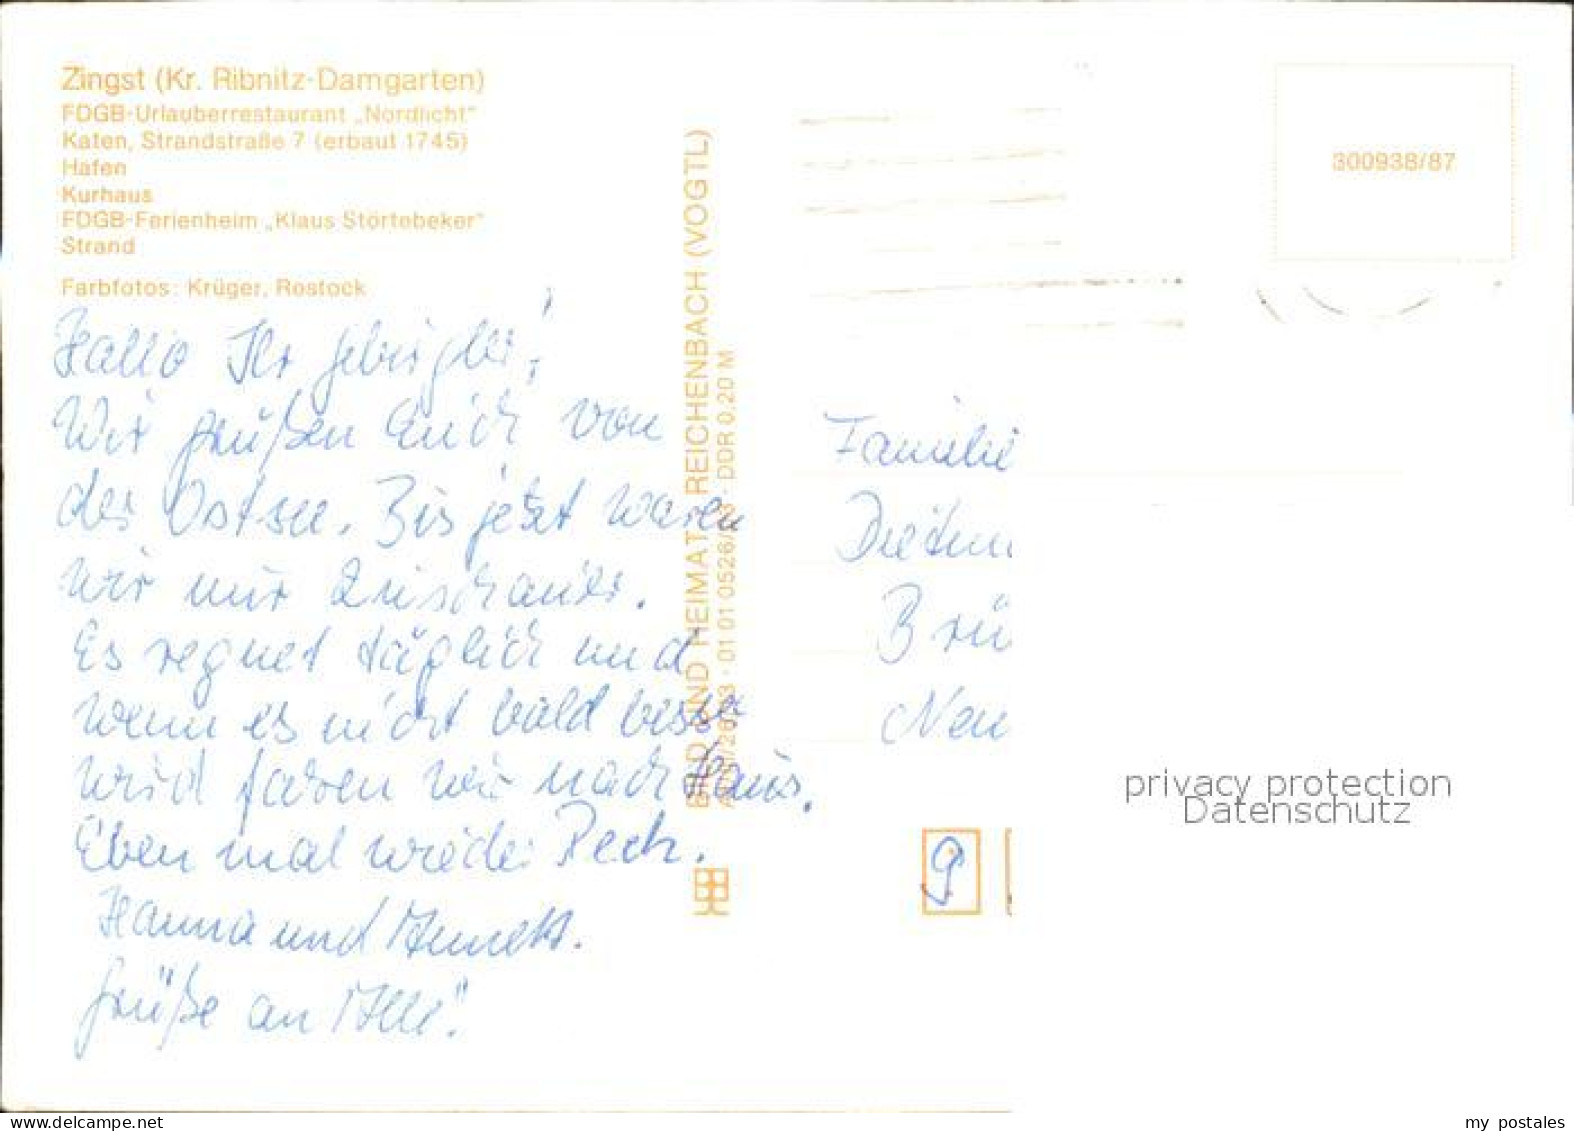 Zingst (Kr. Ribnitz-Damgarten)
FDGB-Urlauberrestaurant „Nordlicht"
Katen, Strandstraße 7 (erbaut 1745)
Hafen
Kurhaus
FDGB-Ferienheim „Klaus Störtebeker"
Strand
Farbfotos: Krüger, Rostock
Hallo Ihr Gebirgler!
Wir grüßen Euch von
der Ostsee. Bis jetzt waren
wir nur Zuschauer.
Es regnet täglich und
wenn es nicht bald besser
wird fahren wir nach Haus.
Eben mal wieder Pech.
Hanna und Annett.
Grüße an Alle!
BILD UND HEIMAT REICHENBACH (VOGTL)
01 01 0526/ · DDR 0,20 M
300938/87
Familie
Dietm
Brü
Neu
privacy protection
Datenschutz
9
my postales